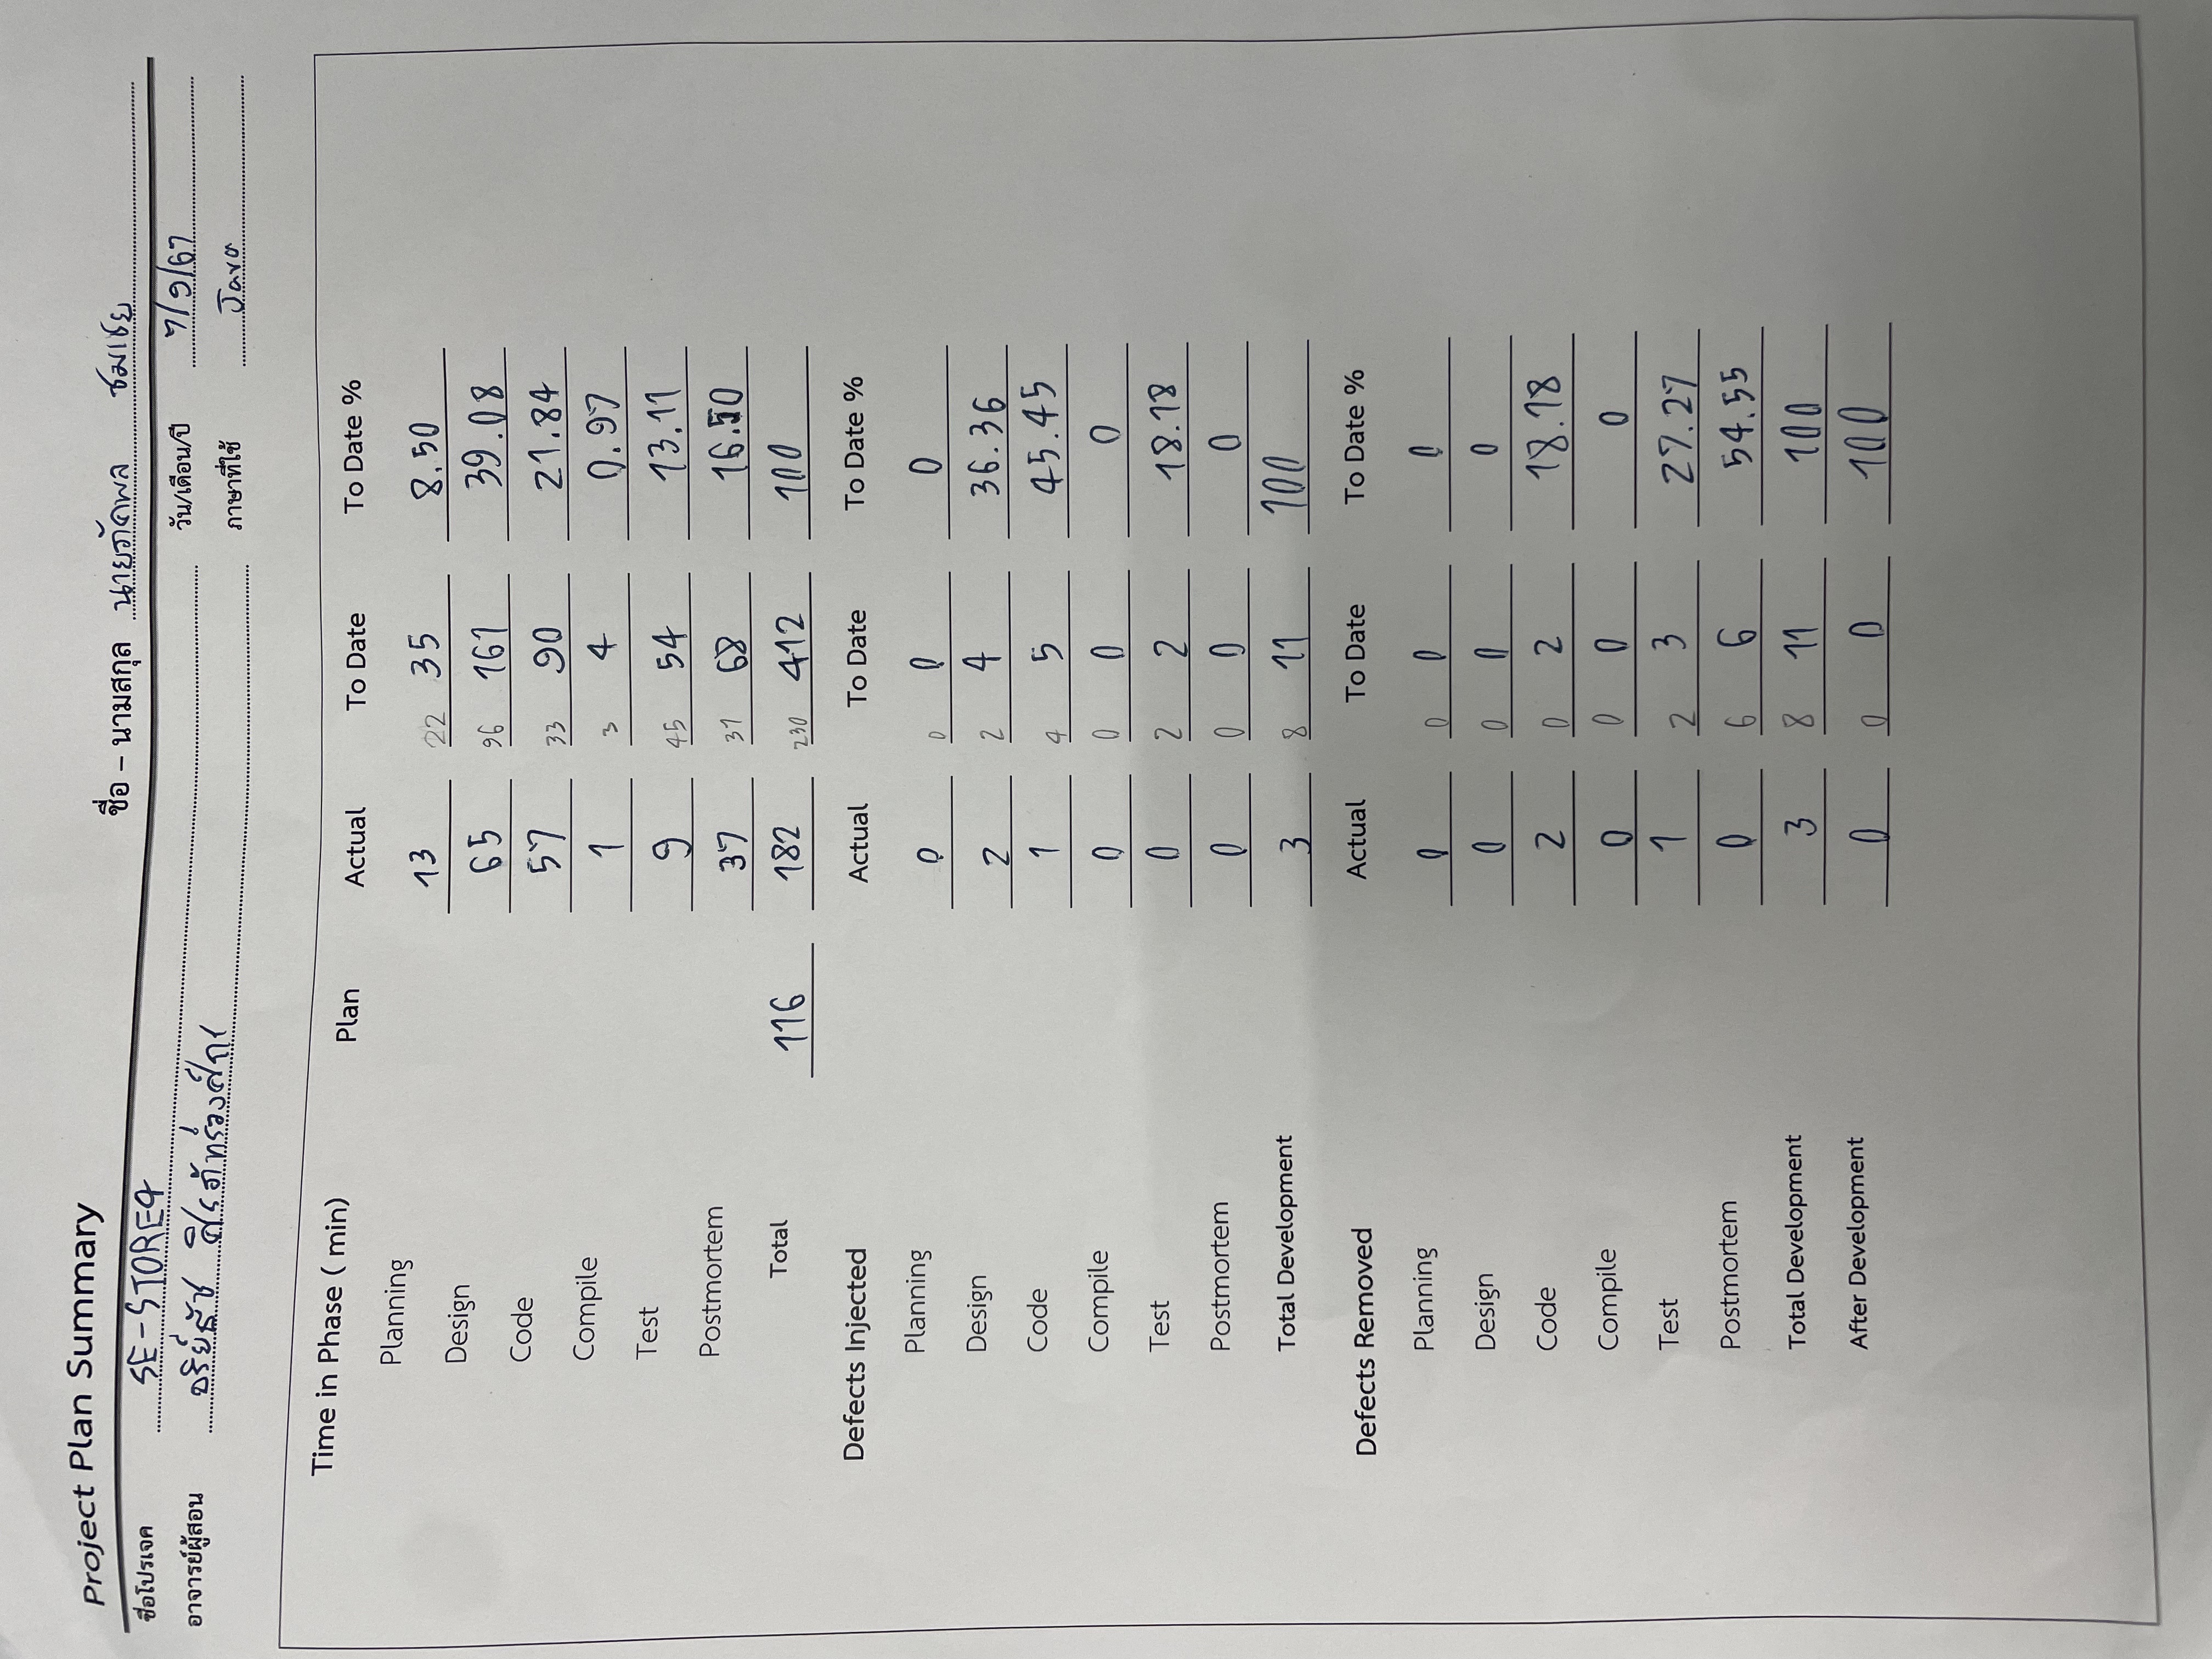 Project Plan Summary
ชื่อ – นามสกุล นายภัคพล ชมเชย
ชื่อโปรเจค SE-STORE4
วัน/เดือน/ปี 7/9/67
อาจารย์ผู้สอน
ภาษาที่ใช้ Java
Time in Phase ( min) Plan Actual To Date To Date %
Planning 13 22 35 8.50
Design 65 96 161 39.08
Code 57 33 90 21.84
Compile 1 3 4 0.97
Test 9 45 54 13.11
Postmortem 37 31 68 16.50
Total 116 182 230 412 100
Defects Injected Actual To Date To Date %
Planning 0 0 0 0
Design 2 2 4 36.36
Code 1 4 5 45.45
Compile 0 0 0 0
Test 0 2 2 18.18
Postmortem 0 0 0 0
Total Development 3 8 11 100
Defects Removed Actual To Date To Date %
Planning 0 0 0 0
Design 0 0 0 0
Code 2 0 2 18.18
Compile 0 0 0 0
Test 1 2 3 27.27
Postmortem 0 6 6 54.55
Total Development 3 8 11 100
After Development 0 0 0 100